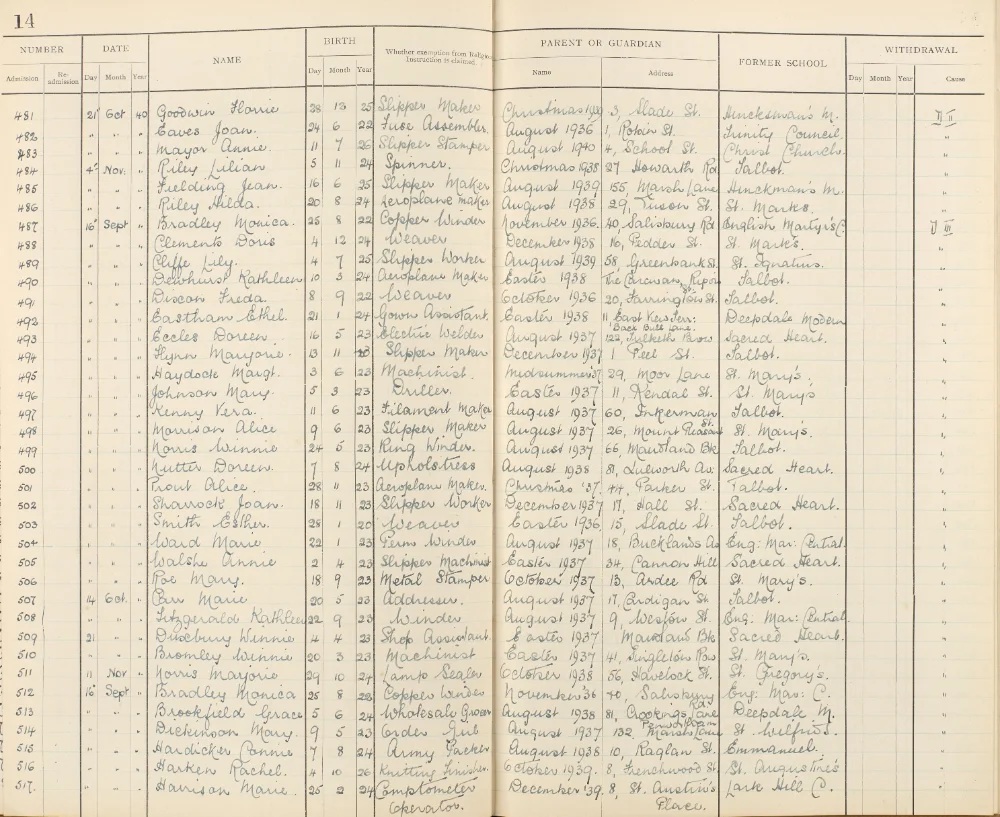 14
NUMBER DATE NAME BIRTH Whether exemption from Religious Instruction is claimed. PARENT OR GUARDIAN FORMER SCHOOL WITHDRAWAL
Admission Re-admission Day Month Year Day Month Year Name Address Day Month Year Cause
481 21st Oct 40 Goodwin Florrie 28 12 25 Slipper Maker Christmas 1939 3, Slade St. Hincksman's M.
482 " " " Eaves Joan. 24 6 22 Fuse Assembler. August 1936 1, Robin St. Trinity Council.
483 " " " Mayor Annie. 11 7 26 Slipper Stamper August 1940 4, School St. Christ Church.
484 4th Nov. " Riley Lilian 5 11 24 Spinner. Christmas 1938 27 Howarth Rd Talbot.
485 " " " Fielding Jean. 16 6 25 Slipper Maker August 1939 155, Marsh Lane Hinckman's M.
486 " " " Riley Hilda. 20 8 24 Aeroplane maker August 1938 29, Tuson St. St. Marks.
487 16th Sept " Bradley Monica. 25 8 22 Copper Winder November 1936. 40, Salisbury Rd English Martyrs C.
488 " " " Clements Doris 4 12 24 Weaver December 1938 16, Pedder St. St. Mark's.
489 " " " Cliffe Lily. 4 7 25 Slipper Worker August 1939 58, Greenbank St. St. Ignatius.
490 " " " Dewhurst Kathleen 10 3 24 Aeroplane Maker Easter 1938 Ripon St. Talbot.
491 " " " Discon Freda. 8 9 22 Weaver October 1936 20, Farrington St. Talbot.
492 " " " Eastham Ethel. 21 1 24 Gown Assistant. Easter 1938 11 East Deepdale Modern
493 " " " Eccles Doreen 16 5 23 Electric Welder August 1937 Back Bull Lane. 122, Tulketh Brow Sacred Heart.
494 " " " Flynn Marjorie. 13 11 Slipper Maker December 1937 1 Peel St. Talbot.
495 " " " Haydock Margt. 3 6 23 Machinist. Midsummer '37 29, Moor Lane St. Mary's.
496 " " " Johnson Mary. 5 3 23 Driller. Easter 1937 11, Kendal St. St. Mary's
497 " " " Kenny Vera. 11 6 23 Filament Maker August 1937 60, Inkerman St. Talbot.
498 " " " Morrison Alice 9 6 23 Slipper Maker August 1937 26, Mount Pleasant St. Mary's.
499 " " " Norris Winnie 24 5 23 Ring Winder. August 1937 66 Maudland Bk Talbot.
500 " " " Nutter Doreen. 7 8 24 Upholstress August 1938 81, Lulworth Av: Sacred Heart.
501 " " " Prout Alice. 28 11 23 Aeroplane Maker. Christmas '37. 44, Parker St. Talbot.
502 " " " Sharrock Joan. 18 11 23 Slipper Worker December 1937 17, Hall St. Sacred Heart.
503 " " " Smith Esther. 28 1 20 Weaver Easter 1936 15, Slade St. Talbot.
504 " " " Ward Marie 22 1 23 Perns Winder August 1937 18, Bucklands Av Eng: Mar: Central.
505 " " " Walshe Annie 2 4 23 Slipper Machinist Easter 1937 34, Cannon Hill Sacred Heart.
506 " " " Roe Mary. 18 9 23 Metal Stamper October 1937 13, Ardee Rd St. Mary's.
507 14 Oct. " Carr Marie 20 5 23 Addresser. August 1937 17, Cardigan St Talbot.
508 " " " Fitzgerald Kathleen 22 9 23 Winder August 1937 9, Weston St. Eng: Mar: Central
509 21 " " Duxbury Winnie 4 4 23 Shop Assistant. Easter 1937 Maudland Bk Sacred Heart.
510 " " " Bromley Winnie 20 3 23 Machinist Easter 1937 41, Singleton Row St. Mary's.
511 11 Nov " Norris Marjorie 29 10 24 Lamp Sealer October 1938 56, Havelock St. St. Gregory's.
512 16th Sept " Bradley Monica 25 8 Copper Winder November '36 40, Salisbury Rd, Eng: Mar: C.
513 " " " Brookfield Grace 5 6 24 Wholesale Grocer August 1938 81, Crookings Lane Deepdale M.
514 " " " Dickinson Mary. 9 5 23 Order Girl August 1937 132, Marsh Lane St. Wilfrid's.
515 " " " Hardicker Connie 7 8 24 Army Packer August 1938 10, Raglan St. Emmanuel.
516 " " " Harken Rachel. 4 10 26 Knitting Finisher. October 1939. 8, Frenchwood St. St. Augustine's
517. " " " Harrison Marie. 25 2 24 Comptometer December '39. 8, St. Austin's Lark Hill C.
Operator. Place.